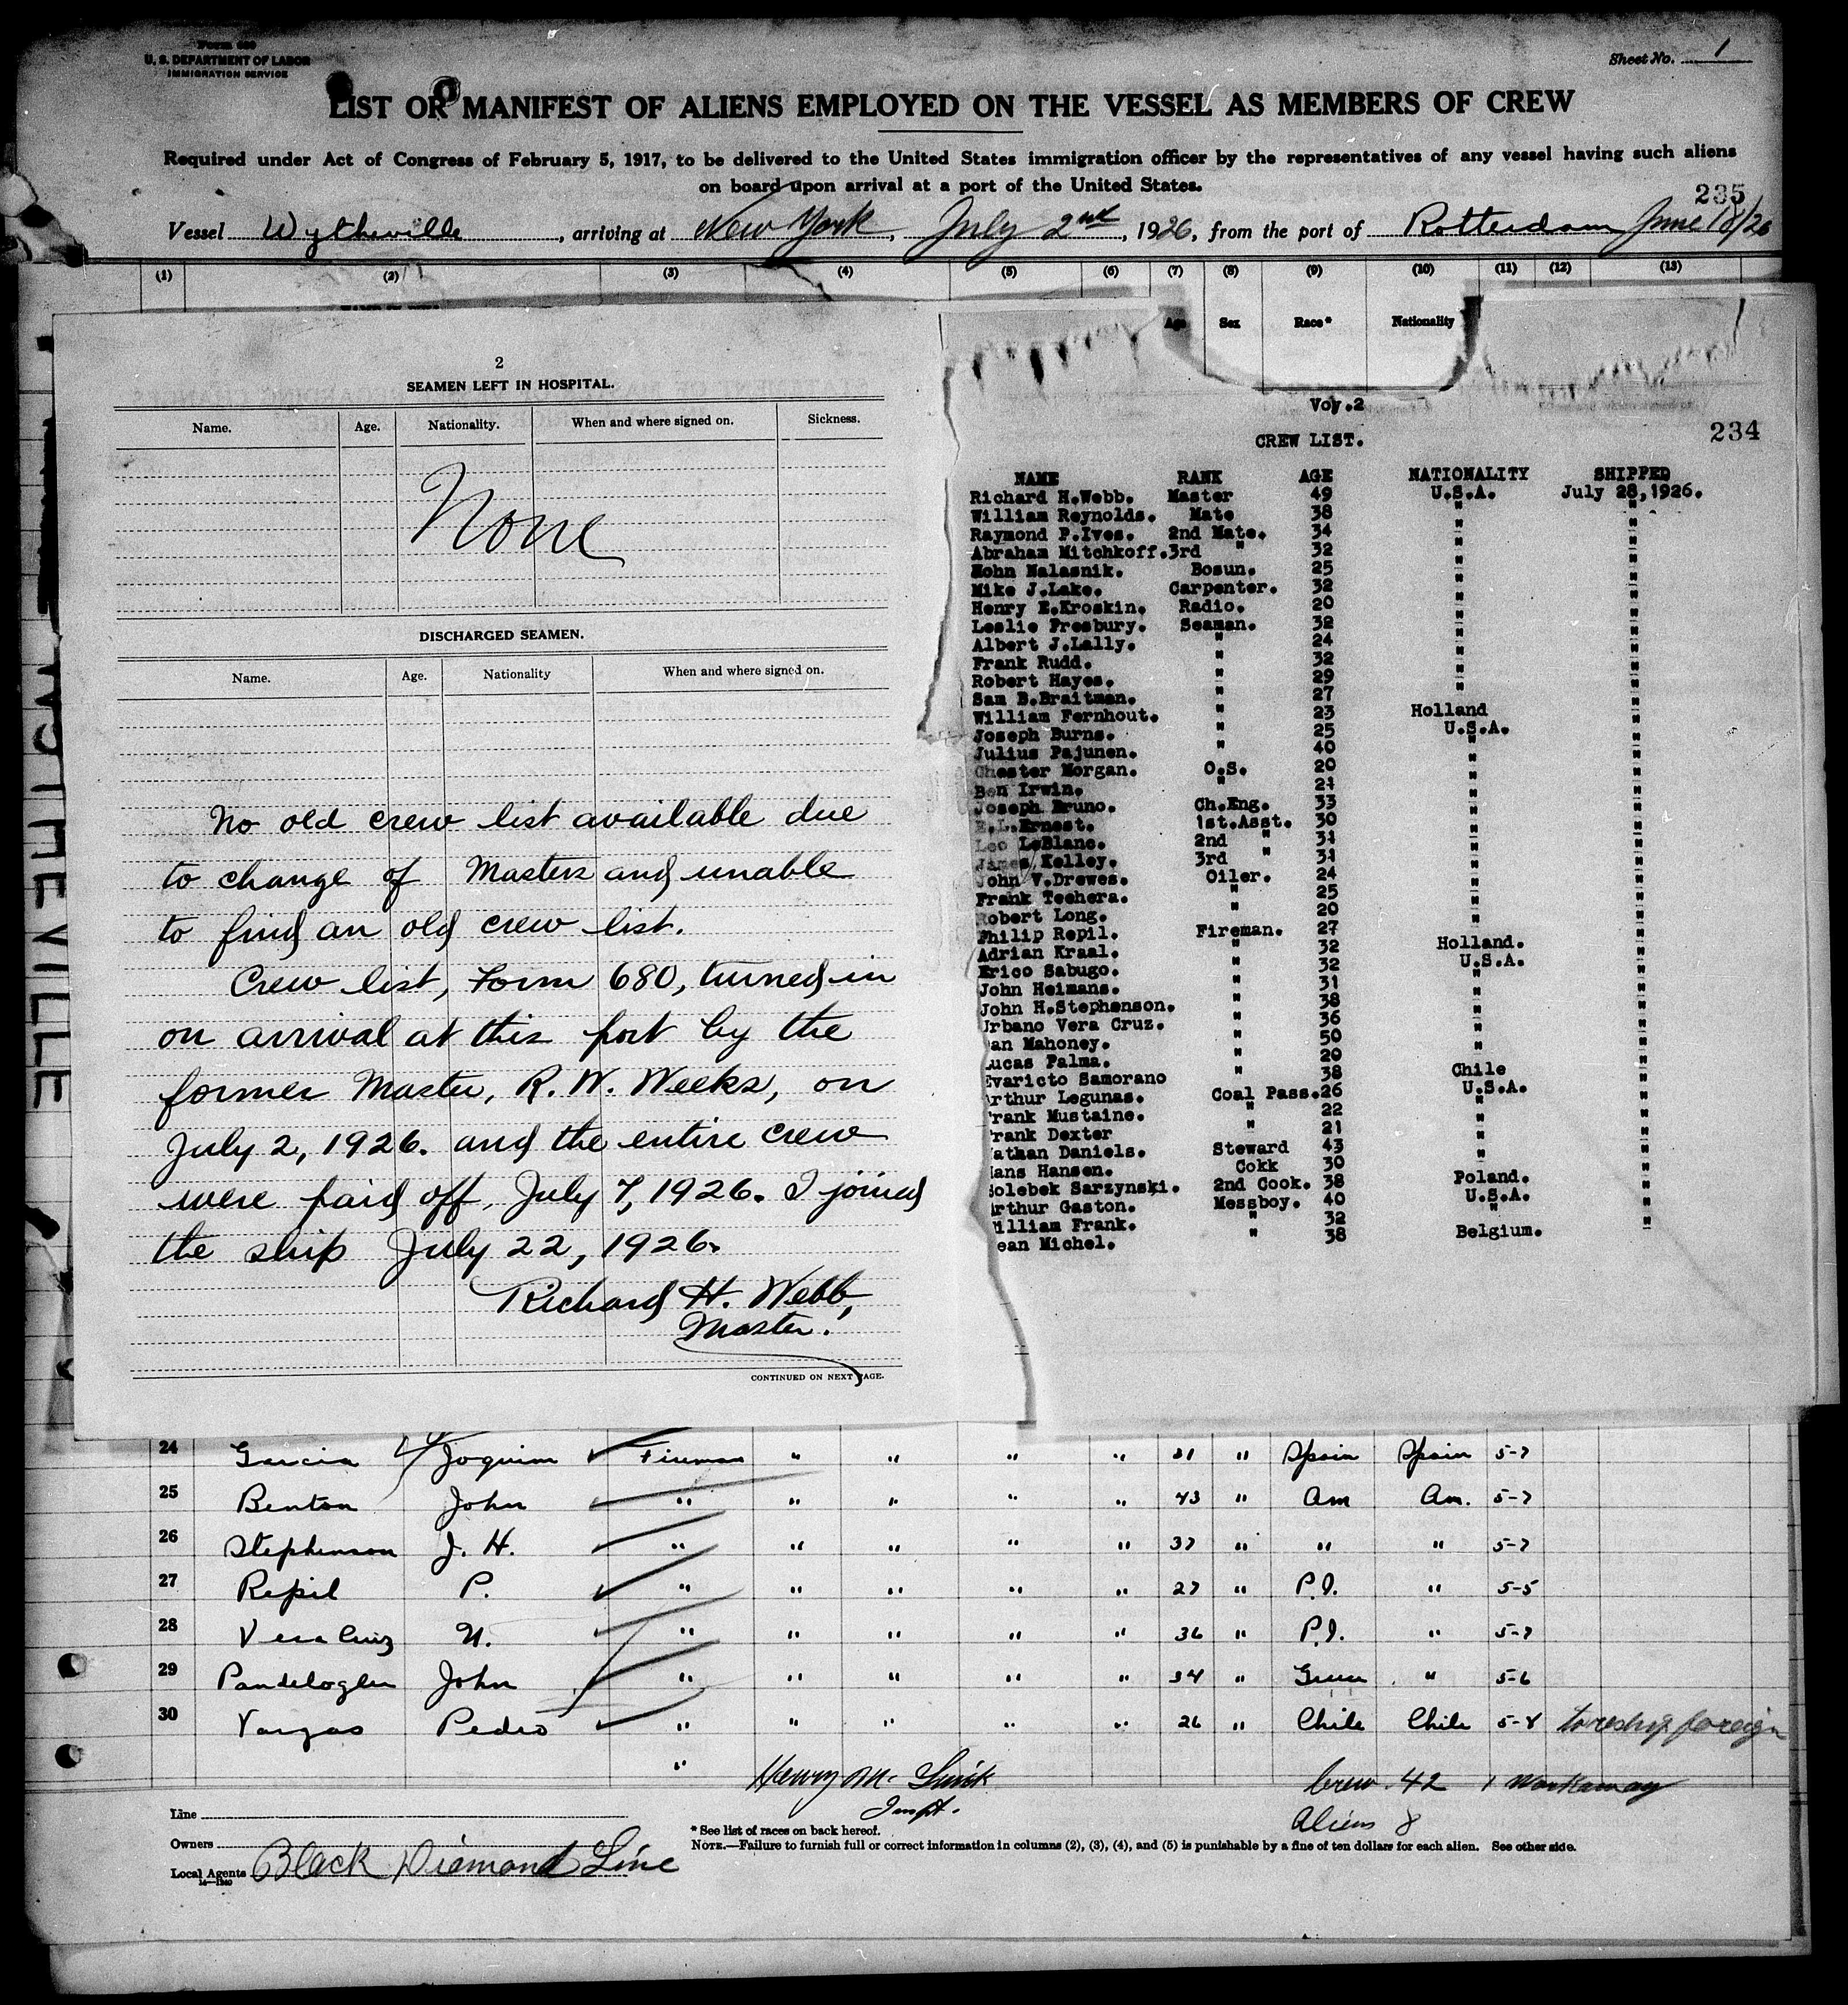 Form 680
U. S. DEPARTMENT OF LABOR
IMMIGRATION SERVICE
Sheet No. 1
LIST OR MANIFEST OF ALIENS EMPLOYED ON THE VESSEL AS MEMBERS OF CREW
Required under Act of Congress of February 5, 1917, to be delivered to the United States immigration officer by the representatives of any vessel having such aliens
on board upon arrival at a port of the United States.
235
Vessel Wytheville, arriving at New York, July 2nd, 1926, from the port of Rotterdam June 18/26
(1) (2) (3) (4) (5) (6) (7) (8) (9) (10) (11) (12) (13)
Age Sex Race* Nationality
2
SEAMEN LEFT IN HOSPITAL.
Name. Age. Nationality. When and where signed on. Sickness.
None
DISCHARGED SEAMEN.
Name. Age. Nationality When and where signed on.
No old crew list available due
to change of Masters and unable
to find an old crew list.
Crew list, Form 680, turned in
on arrival at this port by the
former Master, R. W. Weeks, on
July 2, 1926. and the entire crew
were paid off, July 7, 1926. I joined
the ship July 22, 1926.
Richard H. Webb,
Master.
CONTINUED ON NEXT PAGE.
Voy.2
234
CREW LIST.
NAME RANK AGE NATIONALITY SHIPPED
Richard H.Webb. Master 49 U.S.A. July 28,1926.
William Reynolds. Mate 38 " "
Raymond P.Ives. 2nd Mate. 34 " "
Abraham Mitchkoff.3rd " 32 " "
John Malasnik. Bosun. 25 " "
Mike J.Lake. Carpenter. 32 " "
Henry E.Kroskin. Radio. 20 " "
Leslie Presbury. Seaman. 32 " "
Albert J.Lally. " 24 " "
Frank Rudd. " 32 " "
Robert Hayes. " 29 " "
Sam B.Braitman. " 27 " "
William Fernhout. " 23 Holland "
Joseph Burns. " 25 U.S.A. "
Julius Pajunen. " 40 " "
Chester Morgan. O.S. 20 " "
Ben Irwin. " 21 " "
Joseph Bruno. Ch.Eng. 33 " "
E.L.Ernest. 1st.Asst. 30 " "
Leo LeBlanc. 2nd " 31 " "
James Kelley. 3rd " 31 " "
John V.Drewes. Oiler. 24 " "
Frank Teehera. " 25 " "
Robert Long. " 20 " "
Philip Repil. Fireman. 27 " "
Adrian Kraal. " 32 Holland. "
Erico Sabugo. " 32 U.S.A. "
John Heimans. " 31 " "
John H.Stephenson. " 38 " "
Urbano Vera Cruz. " 36 " "
an Mahoney. " 50 " "
Lucas Palma. " 20 " "
Evaricto Samorano " 38 Chile "
rthur Legunas. Coal Pass.26 U.S.A. "
rank Mustaine. " 22 " "
rank Dexter " 21 " "
athan Daniels. Steward 43 " "
Hans Hansen. Cokk 30 " "
Bolebek Sarzynski. 2nd Cook. 38 Poland. "
rthur Gaston. Messboy. 40 U.S.A. "
illiam Frank. " 32 " "
ean Michel. " 38 Belgium. "
WYTHEVILLE
24 Garcia Joquim Fireman " " " " 31 " Spain Spain 5-7
25 Benton John " " " " " 43 " Am Am. 5-7
26 Stephenson J. H. " " " " " 37 " " " 5-7
27 Repil P. " " " " " 27 " P.I. " 5-5
28 Vera Cruz U. " " " " " 36 " P.I. " 5-7
29 John " " " " " 34 " Greece " 5-6
30 Vargas Pedro " " " " " 26 " Chile Chile 5-8 to reship foreign
"
Henry Mc
Inspt.
Crew 42 1 Workaway
Aliens 8
Line
Owners
Local Agents Black Diamond Line
* See list of races on back hereof.
NOTE.—Failure to furnish full or correct information in columns (2), (3), (4), and (5) is punishable by a fine of ten dollars for each alien. See other side.